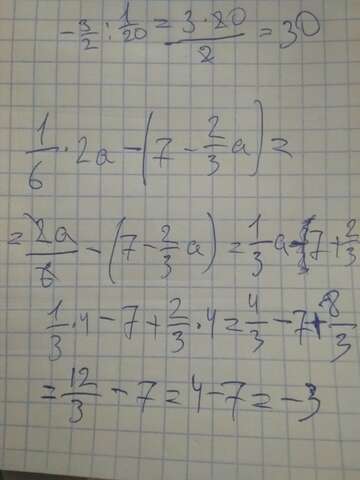 -3/2 : 1/20 = 3·20/2 = 30
1/6 · 2a - (7 - 2/3 a) =
= 2a/6 - (7 - 2/3 a) = 1/3 a - 7 + 2/3
1/3 · 4 - 7 + 2/3 · 4 = 4/3 - 7 + 8/3
= 12/3 - 7 = 4 - 7 = -3